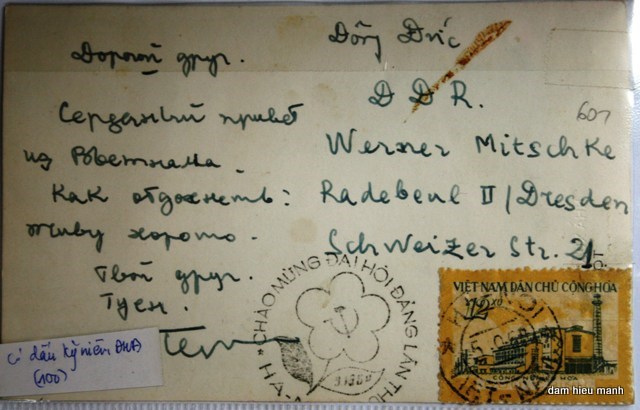 Дорогой друг.
Сердечный привет
из Вьетнама.
Как отдохнеть:
живу хорошо.
Твой друг.
Туен.
Đông Đức
D D R.
607
Werner Mitschke
Radebeul II / Dresden
Schweizer Str. 21
"CHÀO MỪNG ĐẠI HỘI ĐẢNG LẦN THỨ
HÀ-
VIỆT NAM DÂN CHỦ CỘNG HÒA
12 XU
HANOI
VIET-NAM
Có dấu kỷ niệm ĐHĐ
(100)
dam hieu manh